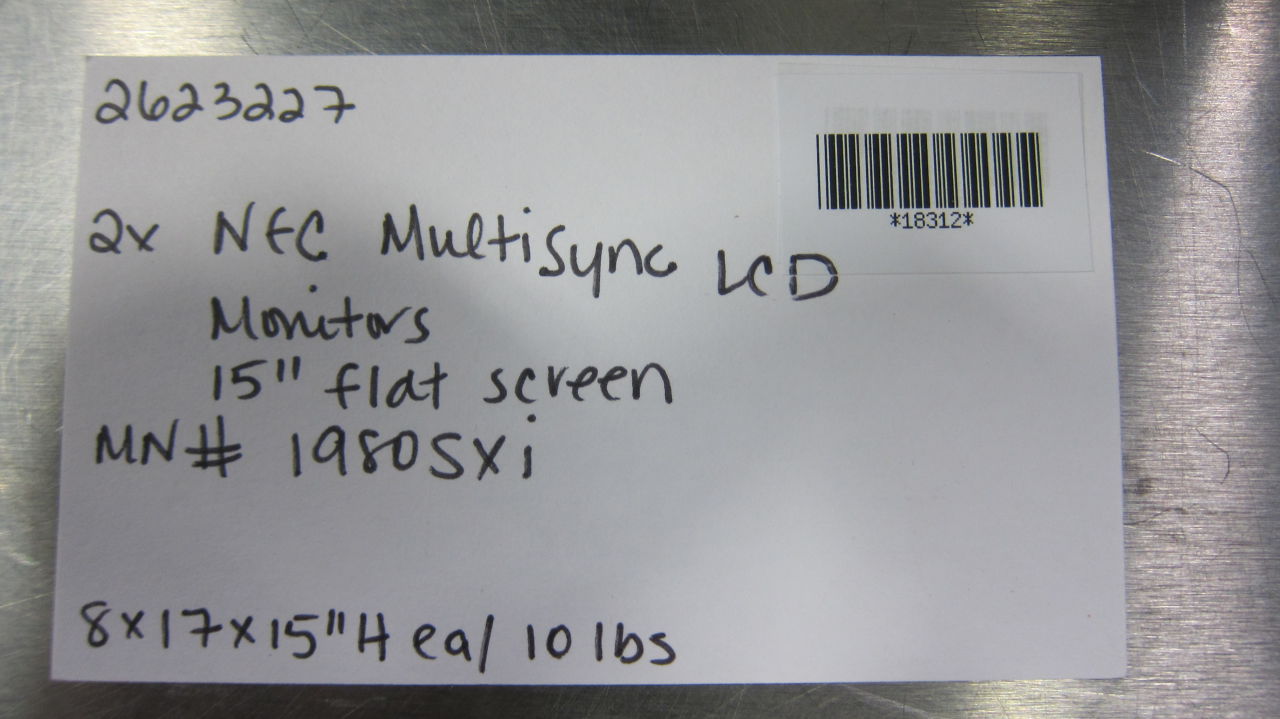 2623227
*18312*
2x NEC MultiSync LCD
Monitors
15" flat screen
MN# 1980SXi
8x17x15"H ea/ 10 lbs